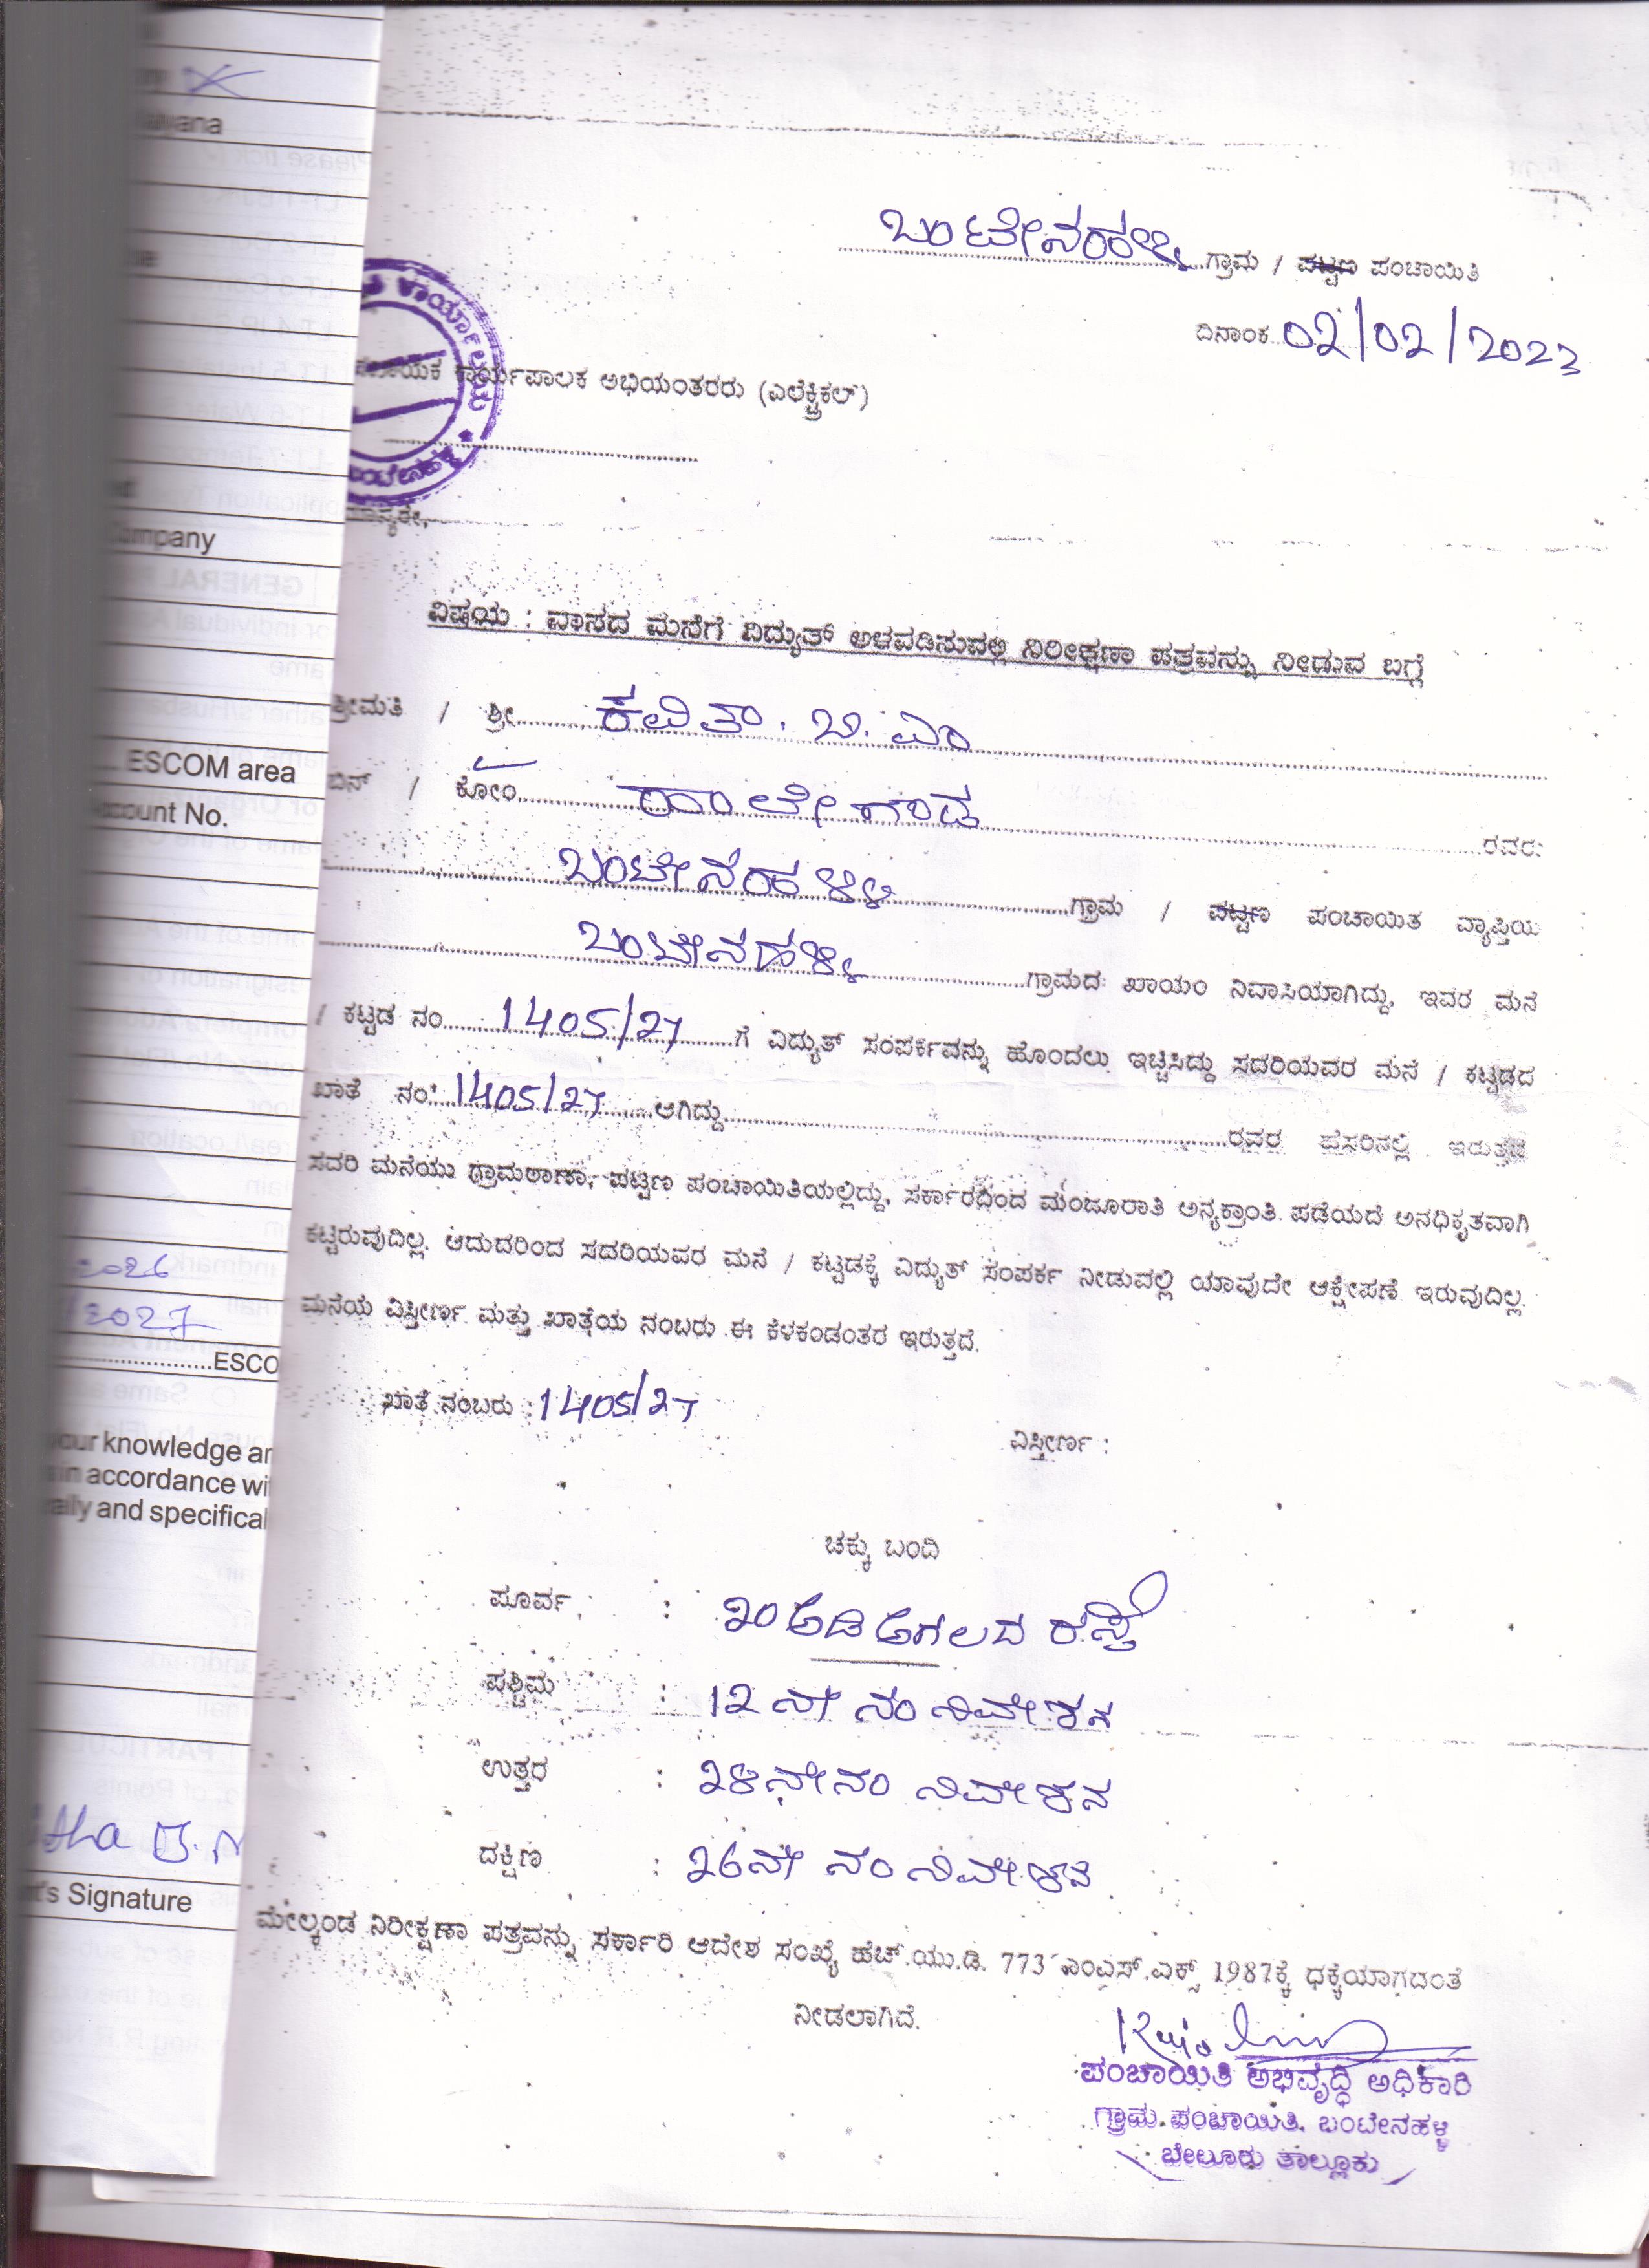 ಬಂಟೇನಹಳ್ಳಿ ಗ್ರಾಮ / ಪಟ್ಟಣ ಪಂಚಾಯಿತಿ
ದಿನಾಂಕ 02/02/2023
ಕಾರ್ಯಪಾಲಕ ಅಭಿಯಂತರರು (ಎಲೆಕ್ಟ್ರಿಕಲ್)
ವಿಷಯ : ವಾಸದ ಮನೆಗೆ ವಿದ್ಯುತ್ ಅಳವಡಿಸುವಲ್ಲಿ ನಿರೀಕ್ಷಣಾ ಪತ್ರವನ್ನು ನೀಡುವ ಬಗ್ಗೆ
ಶ್ರೀಮತಿ / ಶ್ರೀ ಕವಿತಾ. ಬಿ. ಎಂ
ಬಿನ್ / ಕೋಂ ರವರು
ಬಂಟೇನಹಳ್ಳಿ ಗ್ರಾಮ / ಪಟ್ಟಣ ಪಂಚಾಯಿತ ವ್ಯಾಪ್ತಿಯ
ಬಂಟೇನಹಳ್ಳಿ ಗ್ರಾಮದ ಖಾಯಂ ನಿವಾಸಿಯಾಗಿದ್ದು, ಇವರ ಮನೆ
/ ಕಟ್ಟಡ ನಂ 1405/27 ಗೆ ವಿದ್ಯುತ್ ಸಂಪರ್ಕವನ್ನು ಹೊಂದಲು ಇಚ್ಚಿಸಿದ್ದು ಸದರಿಯವರ ಮನೆ / ಕಟ್ಟಡದ
ಖಾತೆ ನಂ 1405/27 ಆಗಿದ್ದು ರವರ ಹೆಸರಿನಲ್ಲಿ ಇರುತ್ತದೆ
ಸದರಿ ಮನೆಯು ಗ್ರಾಮಠಾಣಾ, ಪಟ್ಟಣ ಪಂಚಾಯಿತಿಯಲ್ಲಿದ್ದು, ಸರ್ಕಾರದಿಂದ ಮಂಜೂರಾತಿ ಅನ್ಯಕ್ರಾಂತಿ ಪಡೆಯದೆ ಅನಧಿಕೃತವಾಗಿ
ಕಟ್ಟಿರುವುದಿಲ್ಲ. ಆದುದರಿಂದ ಸದರಿಯವರ ಮನೆ / ಕಟ್ಟಡಕ್ಕೆ ವಿದ್ಯುತ್ ಸಂಪರ್ಕ ನೀಡುವಲ್ಲಿ ಯಾವುದೇ ಆಕ್ಷೇಪಣೆ ಇರುವುದಿಲ್ಲ.
ಮನೆಯ ವಿಸ್ತೀರ್ಣ ಮತ್ತು ಖಾತೆಯ ನಂಬರು ಈ ಕೆಳಕಂಡಂತರ ಇರುತ್ತದೆ.
ಖಾತೆ ನಂಬರು : 1405/27
ವಿಸ್ತೀರ್ಣ :
ಚಕ್ಕು ಬಂದಿ
ಪೂರ್ವ : 20 ಅಡಿ ಅಗಲದ ರಸ್ತೆ
ಪಶ್ಚಿಮ : 12 ನೇ ನಂ ನಿವೇಶನ
ಉತ್ತರ : 28ನೇ ನಂ ನಿವೇಶನ
ದಕ್ಷಿಣ : 26ನೇ ನಂ ನಿವೇಶನ
ಮೇಲ್ಕಂಡ ನಿರೀಕ್ಷಣಾ ಪತ್ರವನ್ನು ಸರ್ಕಾರಿ ಆದೇಶ ಸಂಖ್ಯೆ ಹೆಚ್.ಯು.ಡಿ. 773 ಎಂಎಸ್.ಎಕ್ಸ್ 1987ಕ್ಕೆ ಧಕ್ಕೆಯಾಗದಂತೆ
ನೀಡಲಾಗಿದೆ.
ಪಂಚಾಯಿತಿ ಅಭಿವೃದ್ಧಿ ಅಧಿಕಾರಿ
ಗ್ರಾಮ ಪಂಚಾಯಿತಿ. ಬಂಟೇನಹಳ್ಳಿ
ಬೇಲೂರು ತಾಲ್ಲೂಕು
ESCOM area
No.
2026
2027
ESCO
knowledge
accordance
and
B.
Signature